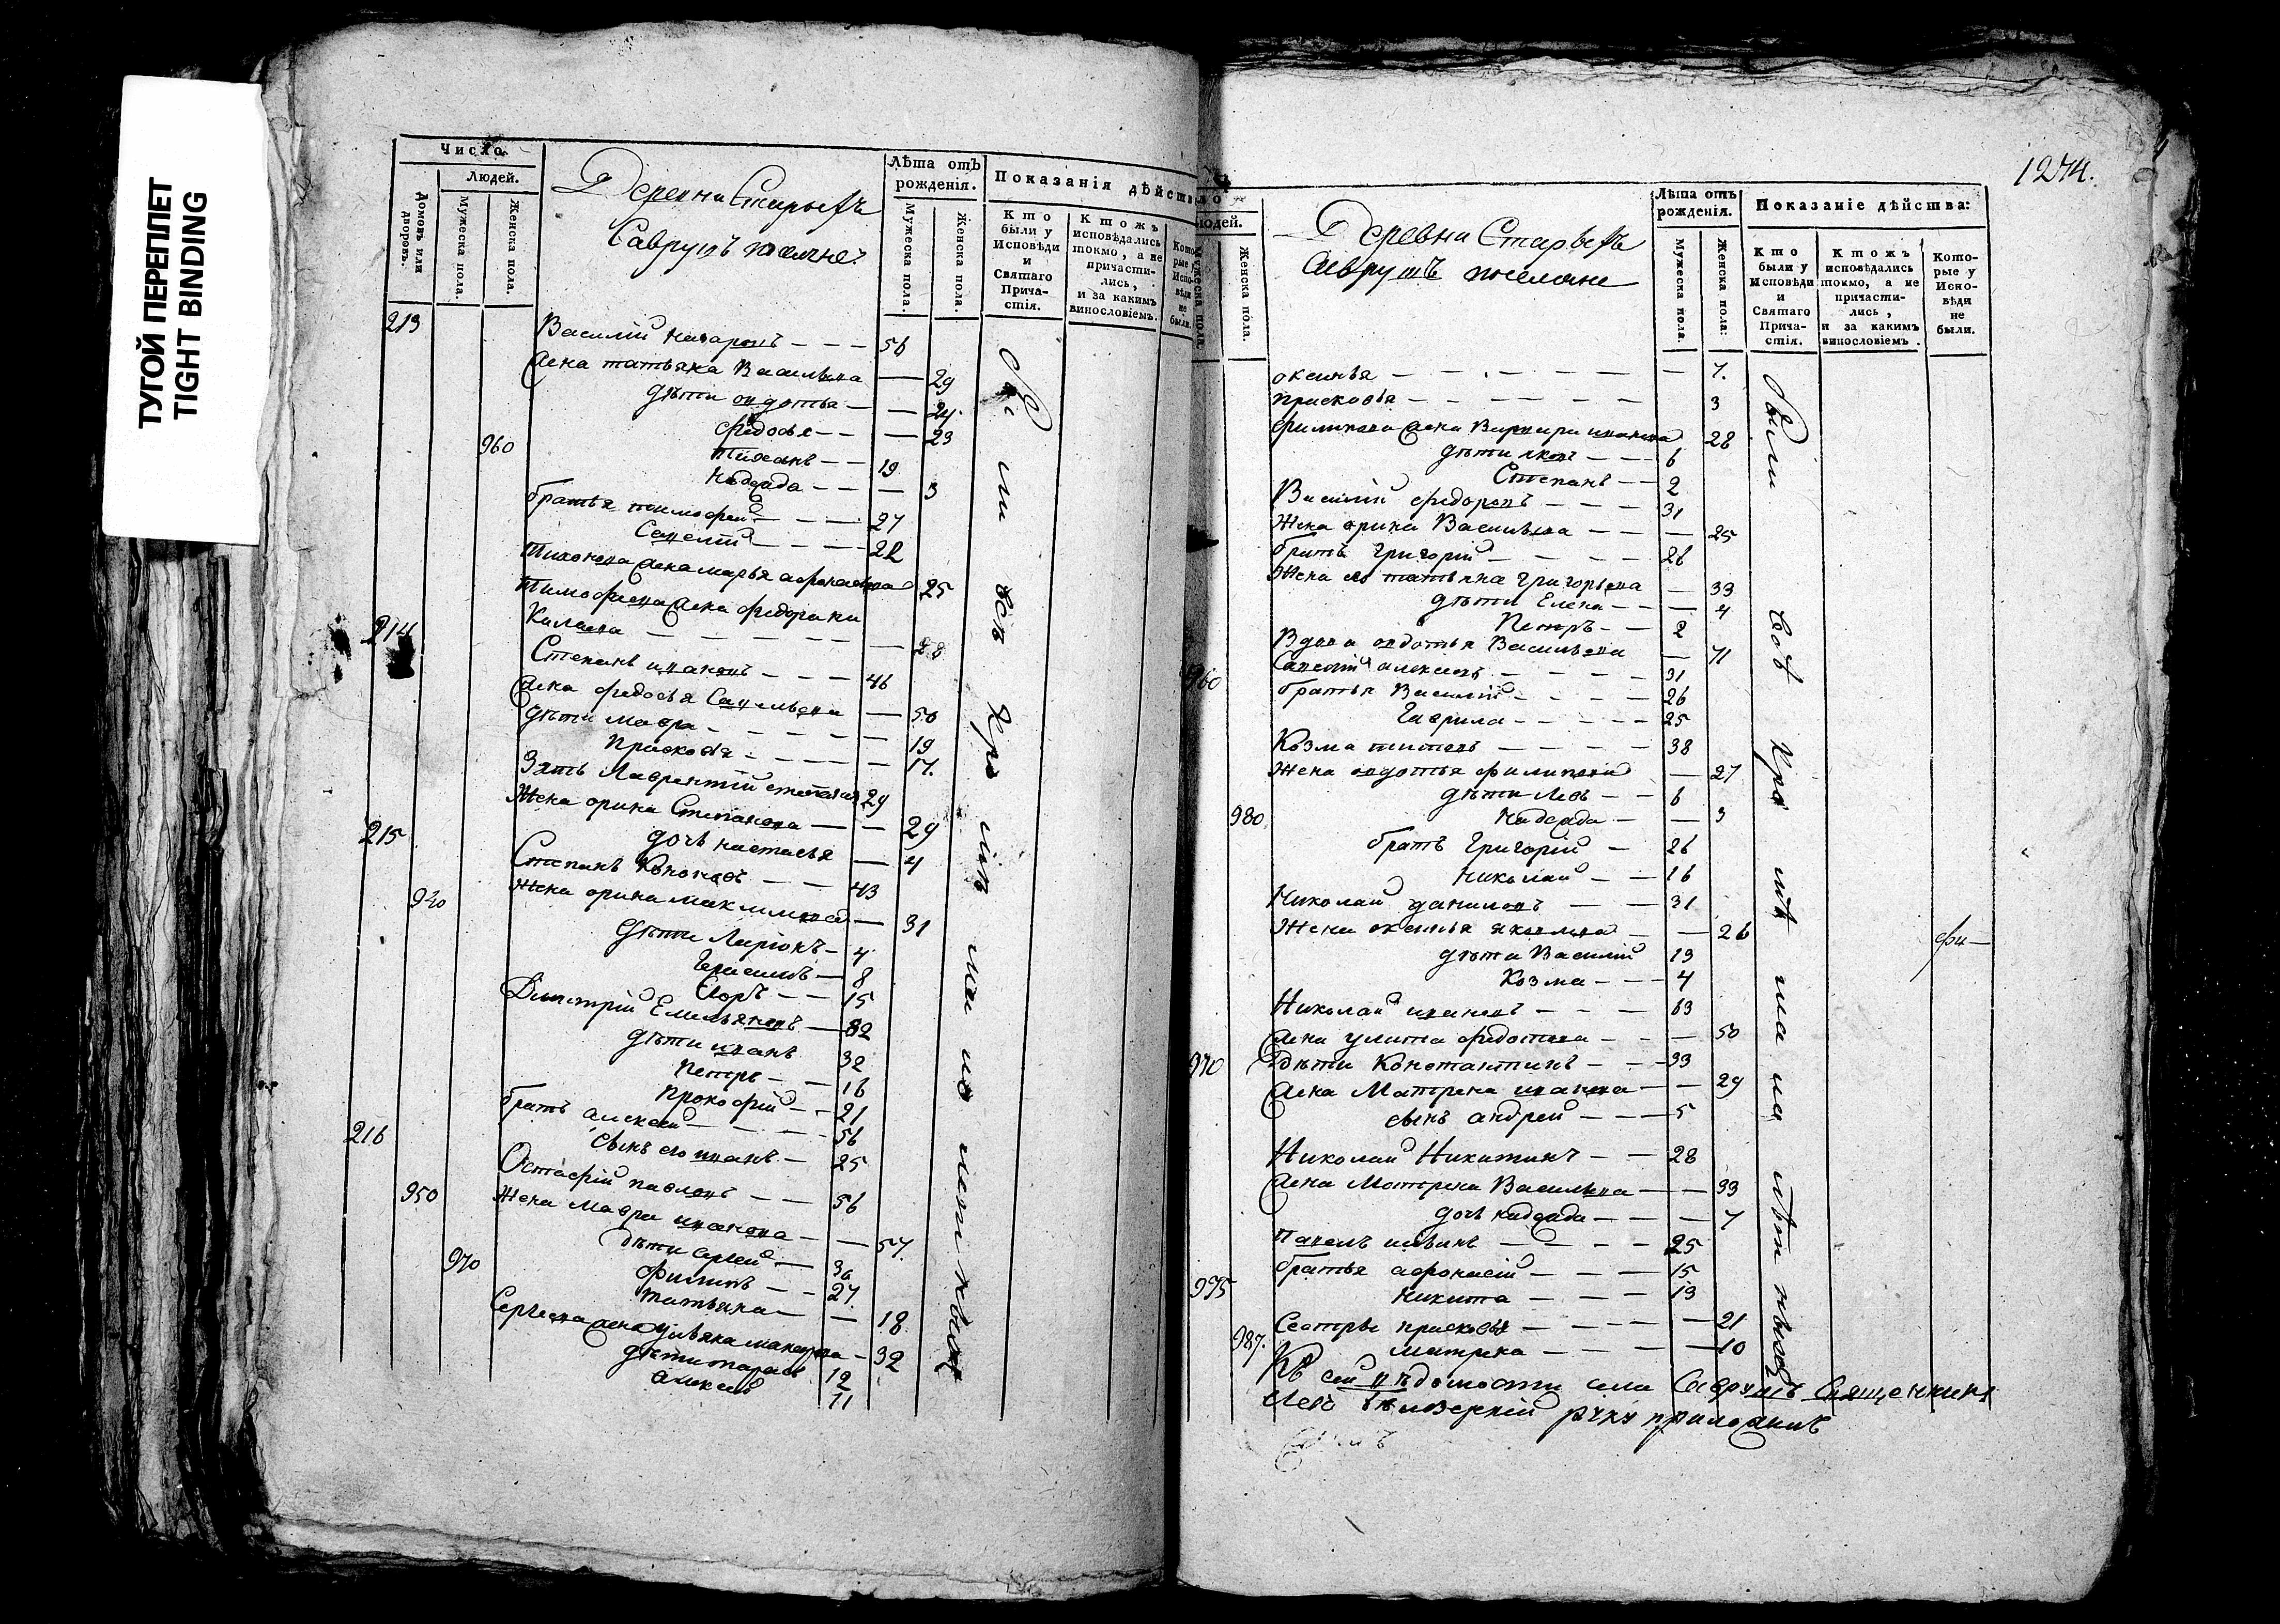 ТУГОЙ ПЕРЕПЛЕТ
TIGHT BINDING
Число
Людей.
Домовъ или дворовъ.
Мужеска пола.
Женска пола.
Деревни Старыхъ
Саврушъ поселяне
Лѣта отъ рожденія.
Мужеска пола.
Женска пола.
Показанія дѣйств
Кто были у Исповѣди и Святаго Причастія.
Ктожъ исповѣдались токмо, а не причастились, и за какимъ винословіемъ.
были.
213
Василій назаровъ — — — 56
жена татьяна Васильева — 29
дѣти овдотья — — 24
федосья — — — 23
960
тиханъ — — 19
надежда — — — 3
братья тимофей — — — 27
Савелій — — — 22
тихонова жена марья афонасьева 25
тимофеева жена федора ки
214
Степанъ ивановъ — — — 46
жена федосья Савельева — 50
дѣти мавра — — — — — 19
прасковья — — — — 17.
Зять Лаврентій степановъ 29
Жена орина Степанова — — 29
215
дочь настасья — 4
Степанъ Кононовъ — — 43
940
жена орина максимова — 31
дѣти Ларіонъ — 4
Герасимъ — 8
Егоръ — — 15
Димитрій Емельяновъ — 82
дѣти иванъ 32
петръ — — 16
прокофій — — 21
братъ алексей — — — — 56
216
сынъ его иванъ — 25
Остафій павловъ — — 56
950
жена мавра иванова — — 57.
дѣти сергей — 36
970
филипъ — — 27.
татьяна — — 18
Сергеева жена ульяна макарова — 32
дѣти тарасъ 12
алексей 11
Были всѣ кро мѣ ма ло лет ныхъ
1274.
ло
юдей.
Женска пола.
Деревни Старыхъ
Саврушъ поселяне
Лѣта отъ рожденія.
Мужеска пола.
Женска пола:
Показаніе дѣйства:
Кто были у Исповѣди и Святаго Причастія.
Ктожъ исповѣдались токмо, а не причастились, и за какимъ винословіемъ.
Которые у Исповѣди не были.
оксинья — — — — — — 7.
прасковья — — — — — — 3
филипова жена Варвара иванова 28
дѣти яковъ — — — 6
Степанъ — — 2
Василій федоровъ — — — 31
Жена орина Васильева — — — 25
братъ григорій — — — — 26
Жена его татьяна григорьева — 33
дѣти Елена — — — 4
Петръ — — 2
Вдова овдотья Васильева — 71
960
Савелій алексеевъ — — — — 31
братья Василій — — — — 26
Гаврила — — — — — 25
Козма титовъ — — — — 38
Жена овдотья филипова — 27
дѣти Левъ — — 6
980
надежда — — 3
братъ Григорій — 26
николай — — 16
Николай даниловъ — — 31
Жена оксинья яковлева — — 26
дѣти Василій 13
Козма — — — 4
Николай ивановъ — — — 63
жена улита федотова — — — 50
970
дѣти Константинъ — — — 33
жена Матрена иванова — — 29
сынъ андрей — — — 5
Николай Никитинъ — — 28
жена Матрена Васильева — — 33
дочь надежда — — — 7
Павелъ ильинъ — — — — 25
братья афонасій — — — 15
975
никита — — — 13
Сестры прасковья — — — — 21
987.
матрена — — — — 10
Были всѣ кро мѣ ма ло лѣт ныхъ
Къ сей вѣдомости села Саврушъ Священникъ
Левъ бѣлозерскій руку приложилъ